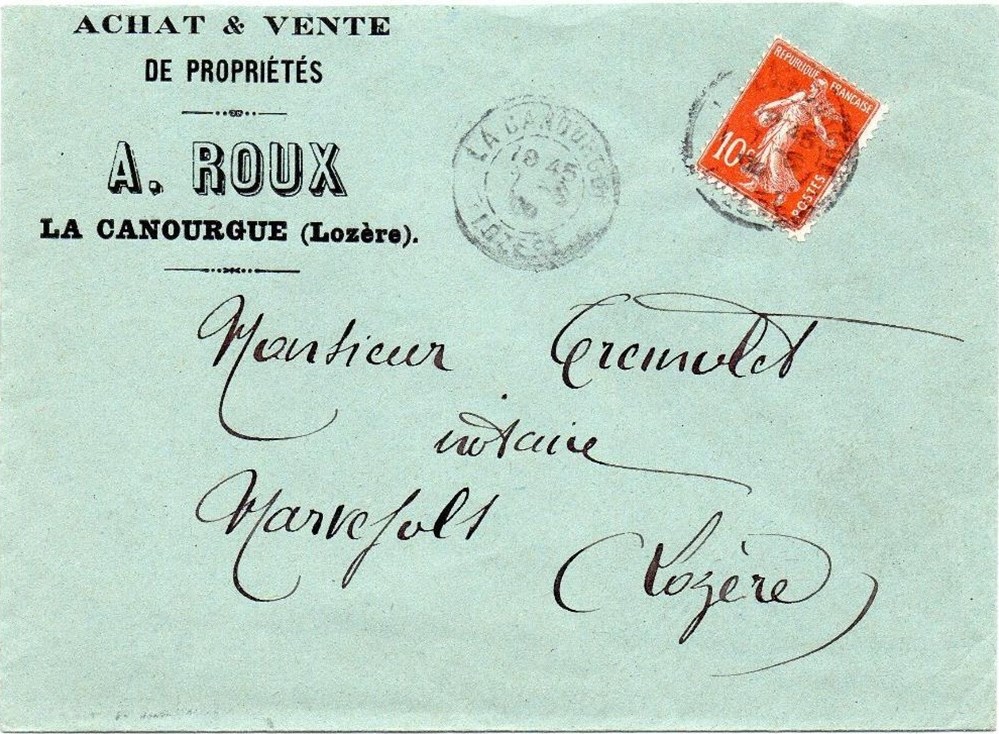 ACHAT & VENTE
DE PROPRIÉTÉS
A. ROUX
LA CANOURGUE (Lozère).
LA CANOURGUE
18 45
LOZERE
REPUBLIQUE FRANÇAISE
10c
POSTES
Monsieur Tremolet
notaire
Marvejols
(Lozère)